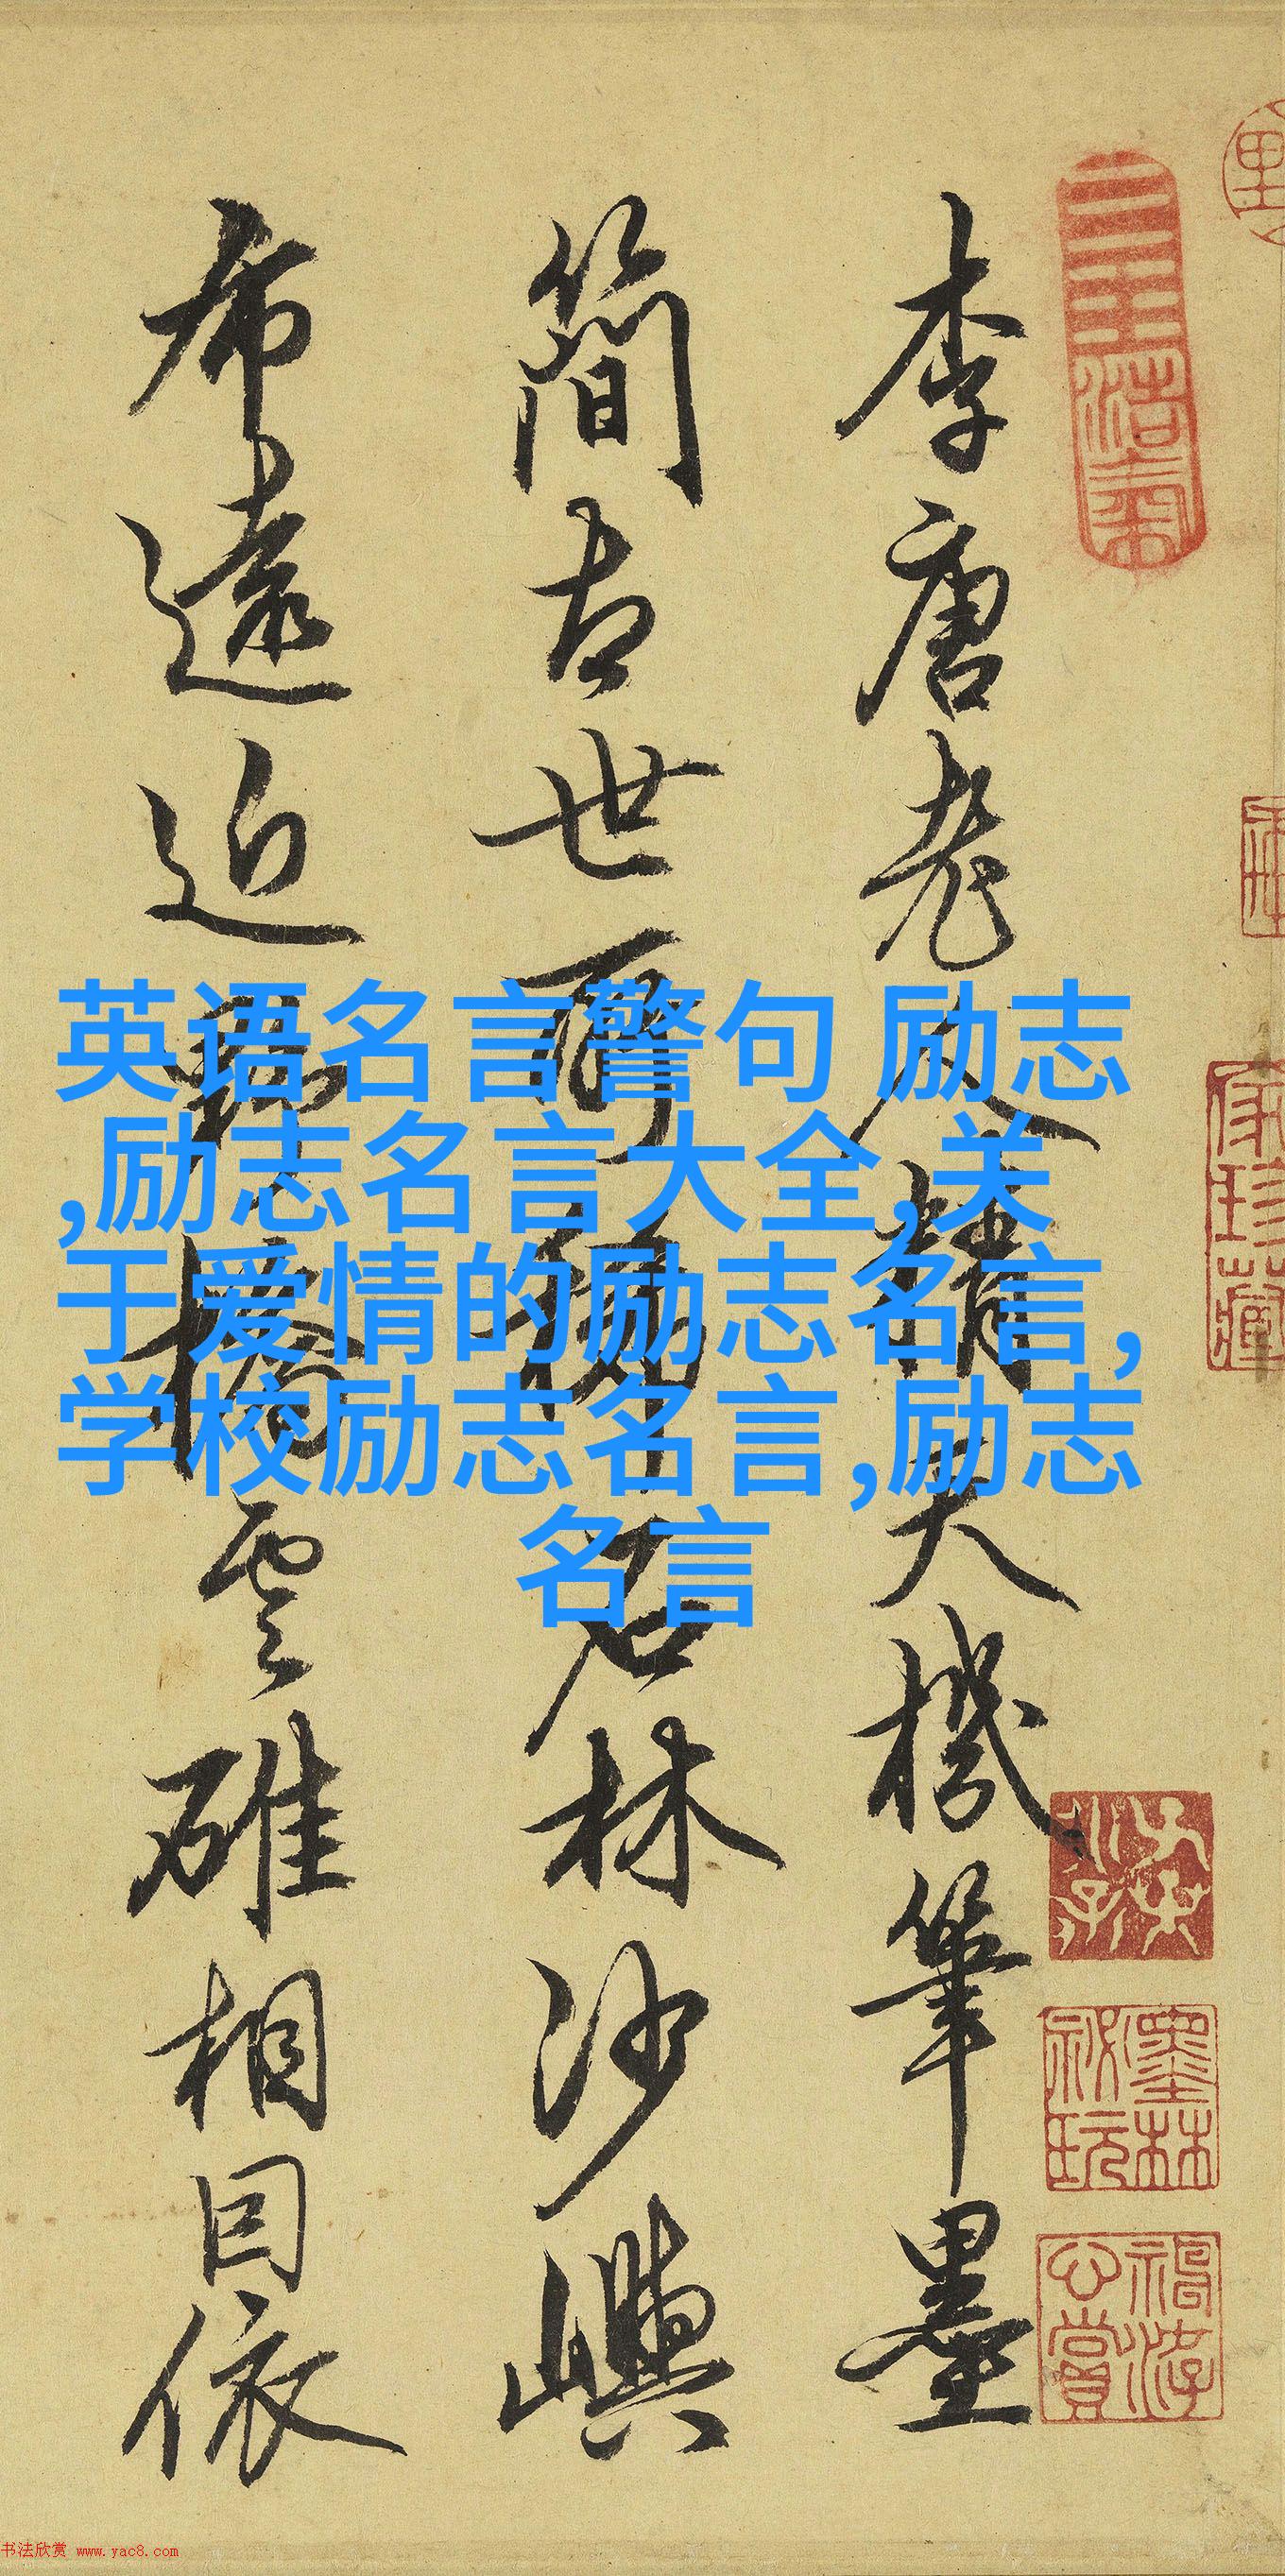 李唐老人精天機筆墨
簡古世所稀石林沙嶼
布遠近野橋雲碓相因依
英语名言警句 励志
,励志名言大全,关
于爱情的励志名言,
学校励志名言,励志
名言
墨林秘玩
书法欣赏 www.yac8.com